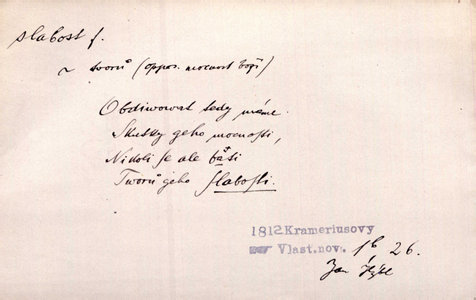 slabost f.
~ tvorů (oppos. mocnost boží)
Obdiwowat tedy máme
Skutky geho mocnosti,
Nikoli se ale báti
Tworů geho slabosti.
1812 Krameriusovy
Vlast. nov. 1b 26.
Jan Hýbl